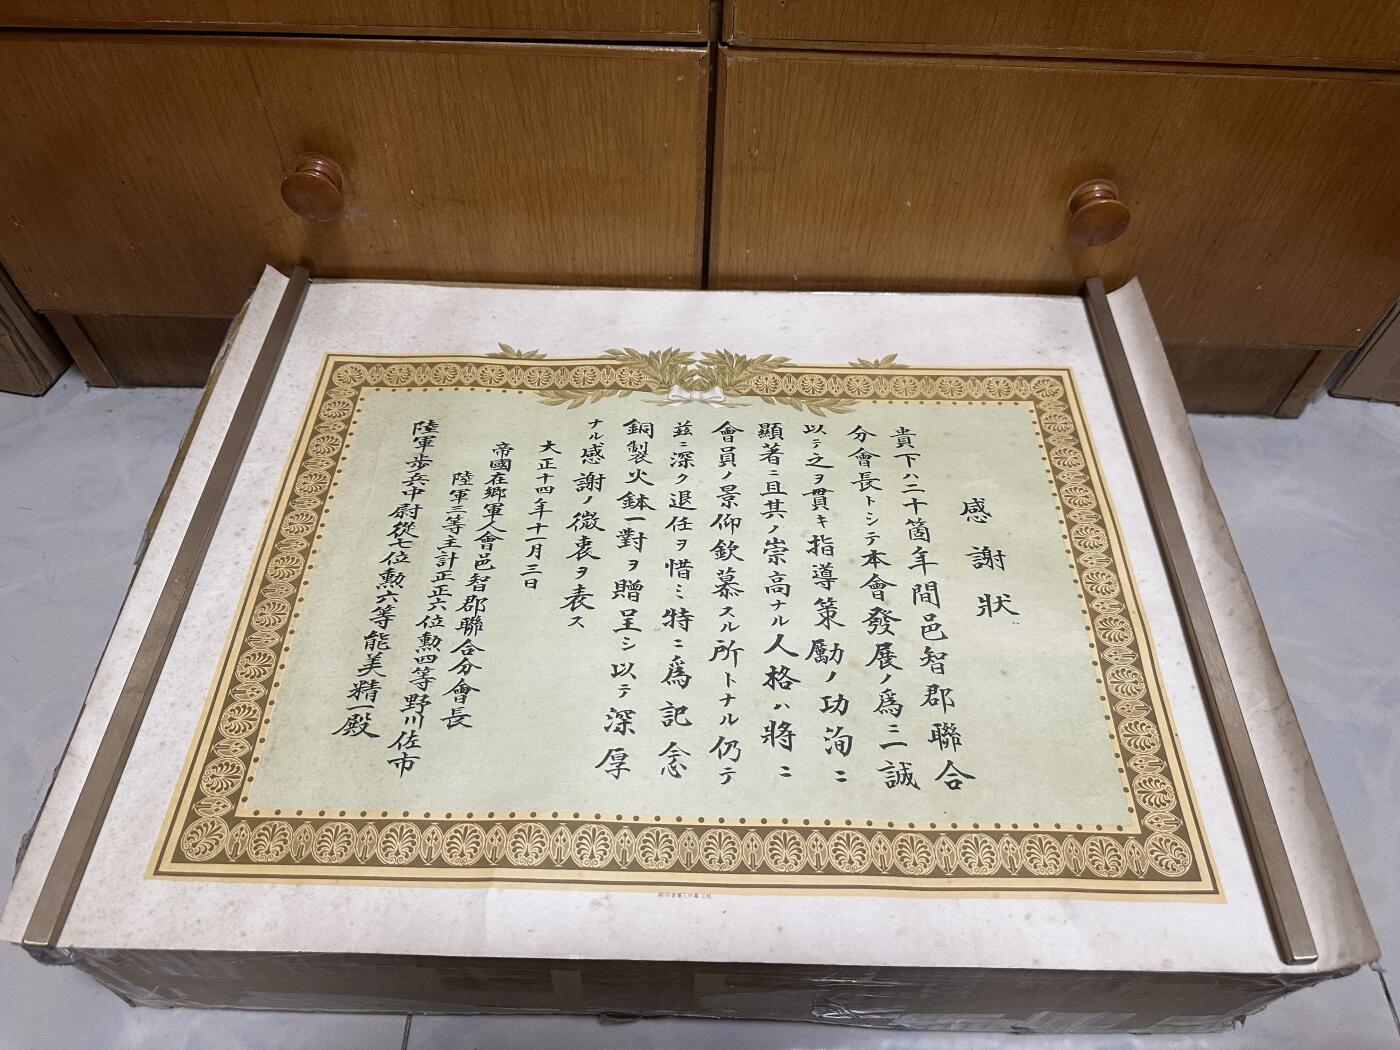 感謝狀
貴下ハ二十箇年間邑智郡聯合
分會長トシテ本會發展ノ爲ニ誠
以テ之ヲ貫キ指導策勵ノ功洵ニ
顯著ニ且其ノ崇高ナル人格ハ將ニ
會員ノ景仰欽慕スル所トナル仍テ
茲ニ深ク退任ヲ惜ミ特ニ爲記念
銅製火鉢一對ヲ贈呈シ以テ深厚
ナル感謝ノ微衷ヲ表ス
大正十四年十一月三日
帝國在郷軍人會邑智郡聯合分會長
陸軍三等主計正正六位勲四等野川佐市
陸軍歩兵中尉從七位勲六等能美精一殿